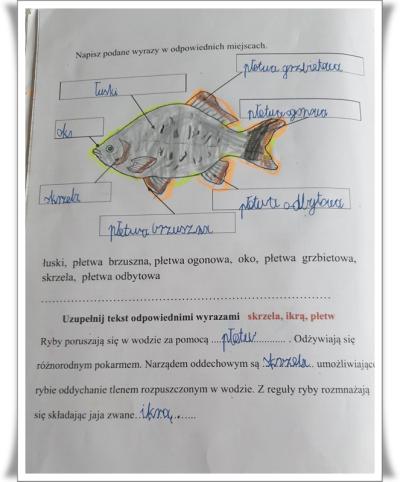 Napisz podane wyrazy w odpowiednich miejscach.
płetwa grzbietowa
łuski
płetwa ogonowa
oko
skrzela
płetwa odbytowa
płetwa brzuszna
łuski, płetwa brzuszna, płetwa ogonowa, oko, płetwa grzbietowa,
skrzela, płetwa odbytowa
Uzupełnij tekst odpowiednimi wyrazami skrzela, ikrą, płetw
Ryby poruszają się w wodzie za pomocą ... płetw ............... . Odżywiają się
różnorodnym pokarmem. Narządem oddechowym są .skrzela.. umożliwiające
rybie oddychanie tlenem rozpuszczonym w wodzie. Z reguły ryby rozmnażają
się składając jaja zwane. ikrą .......